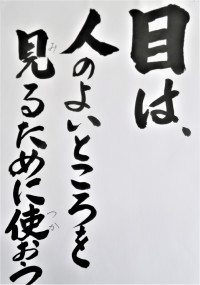 目は、
人のよいところを
見るために使おう